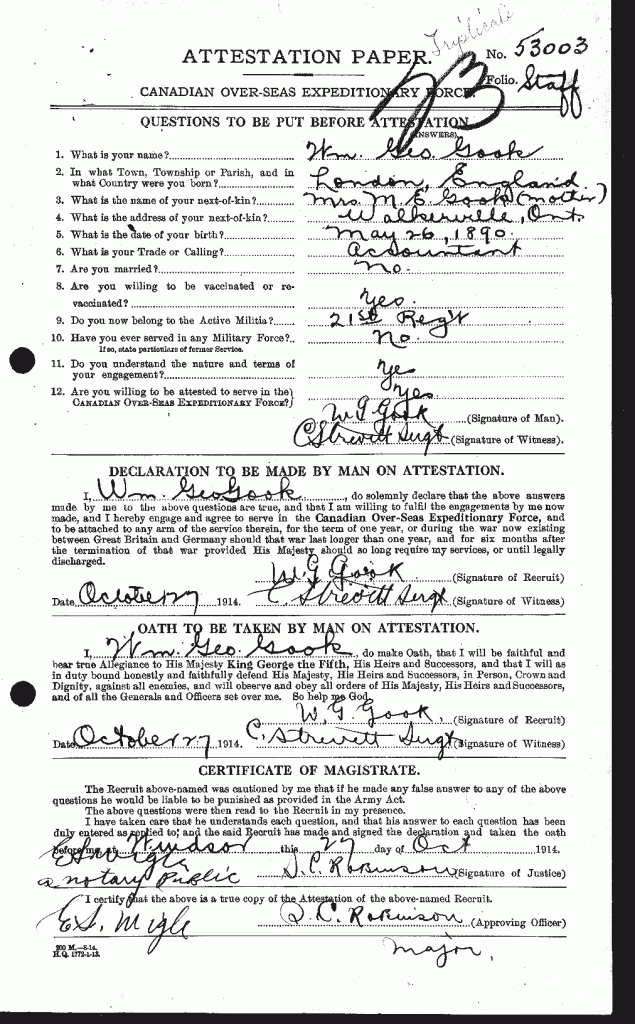 Triplicate
ATTESTATION PAPER.
No. 53003
Folio. Staff
CANADIAN OVER-SEAS EXPEDITIONARY FORCE.
QUESTIONS TO BE PUT BEFORE ATTESTATION.
(ANSWERS).
1. What is your name? Wm. Geo Gook
2. In what Town, Township or Parish, and in
what Country were you born? London, England
3. What is the name of your next-of-kin? Mrs M E Gook (mother)
4. What is the address of your next-of-kin? Walkerville, Ont.
5. What is the date of your birth? May 26, 1890.
6. What is your Trade or Calling? Accountant
7. Are you married? No.
8. Are you willing to be vaccinated or re-
vaccinated? Yes.
9. Do you now belong to the Active Militia? 21st Reg't
10. Have you ever served in any Military Force? No.
If so, state particulars of former Service.
11. Do you understand the nature and terms of
your engagement? Yes
12. Are you willing to be attested to serve in the
CANADIAN OVER-SEAS EXPEDITIONARY FORCE? Yes.
W G Gook (Signature of Man).
C Strevett Sergt (Signature of Witness).
DECLARATION TO BE MADE BY MAN ON ATTESTATION.
I, Wm. Geo Gook, do solemnly declare that the above answers
made by me to the above questions are true, and that I am willing to fulfil the engagements by me now
made, and I hereby engage and agree to serve in the Canadian Over-Seas Expeditionary Force, and
to be attached to any arm of the service therein, for the term of one year, or during the war now existing
between Great Britain and Germany should that war last longer than one year, and for six months after
the termination of that war provided His Majesty should so long require my services, or until legally
discharged.
W G Gook (Signature of Recruit)
Date October 27 1914. C Strevett Sergt (Signature of Witness)
OATH TO BE TAKEN BY MAN ON ATTESTATION.
I, Wm. Geo Gook, do make Oath, that I will be faithful and
bear true Allegiance to His Majesty King George the Fifth, His Heirs and Successors, and that I will as
in duty bound honestly and faithfully defend His Majesty, His Heirs and Successors, in Person, Crown and
Dignity, against all enemies, and will observe and obey all orders of His Majesty, His Heirs and Successors,
and of all the Generals and Officers set over me. So help me God.
W. G. Gook, (Signature of Recruit)
Date October 27 1914. C. Strevett Sergt (Signature of Witness)
CERTIFICATE OF MAGISTRATE.
The Recruit above-named was cautioned by me that if he made any false answer to any of the above
questions he would be liable to be punished as provided in the Army Act.
The above questions were then read to the Recruit in my presence.
I have taken care that he understands each question, and that his answer to each question has been
duly entered as replied to, and the said Recruit has made and signed the declaration and taken the oath
before me, at Windsor this 27 day of Oct 1914.
E S Wigle
a notary public
S. C. Robinson (Signature of Justice)
I certify that the above is a true copy of the Attestation of the above-named Recruit.
E S. Wigle
S. C. Robinson (Approving Officer)
Major,
200 M.—8-14.
H.Q. 1772-1-13.